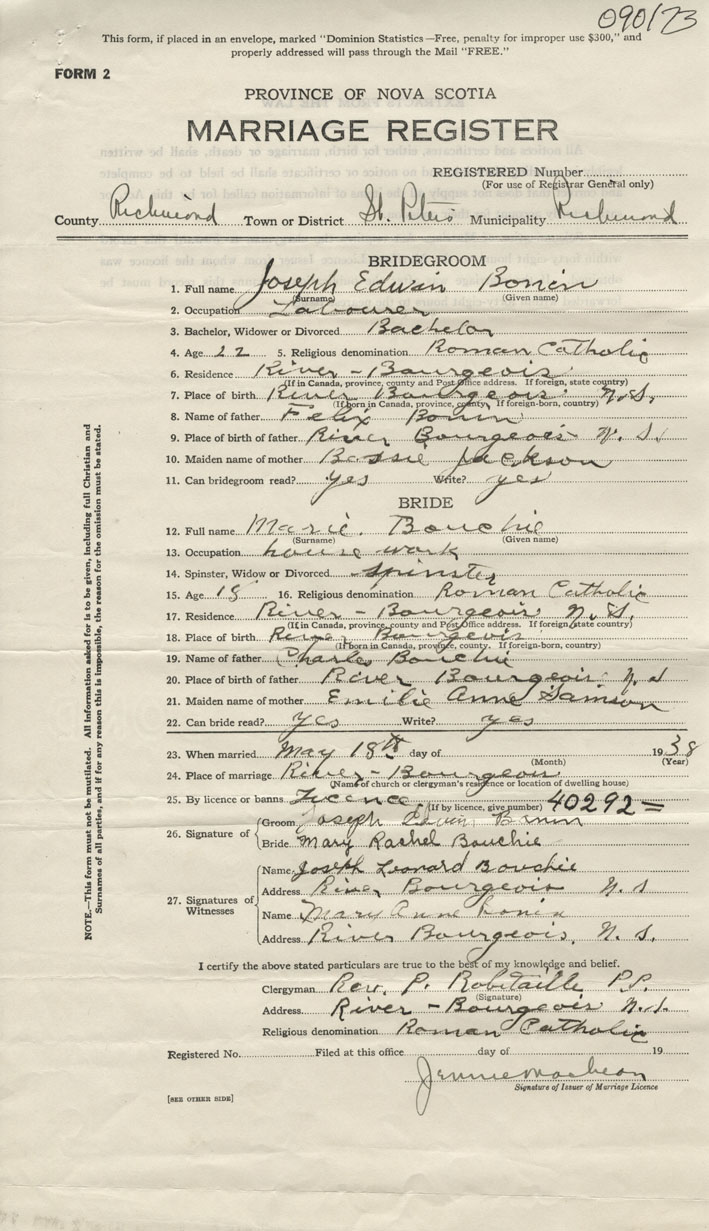 090173
This form, if placed in an envelope, marked "Dominion Statistics—Free, penalty for improper use $300," and
properly addressed will pass through the Mail "FREE."
FORM 2
PROVINCE OF NOVA SCOTIA
MARRIAGE REGISTER
REGISTERED Number
(For use of Registrar General only)
County Richmond Town or District St. Peters Municipality Richmond
BRIDEGROOM
1. Full name Joseph Edwin Bonin
(Surname) (Given name)
2. Occupation Labourer
3. Bachelor, Widower or Divorced Bachelor
4. Age 22 5. Religious denomination Roman Catholic
6. Residence River-Bourgeois
(If in Canada, province, county and Post Office address. If foreign, state country)
7. Place of birth River Bourgeois N.S.
(If born in Canada, province, county, If foreign-born, country)
8. Name of father Felix Bonin
9. Place of birth of father River Bourgeois N. S.
10. Maiden name of mother Bessie Jackson
11. Can bridegroom read? yes Write? yes
BRIDE
12. Full name Marie Bouchie
(Surname) (Given name)
13. Occupation house work
14. Spinster, Widow or Divorced Spinster
15. Age 18 16. Religious denomination Roman Catholic
17. Residence River-Bourgeois N.S.
(If in Canada, province, county and Post Office address. If foreign, state country)
18. Place of birth River Bourgeois
(If born in Canada, province, county. If foreign-born, country)
19. Name of father Charles Bouchie
20. Place of birth of father River Bourgeois N. S
21. Maiden name of mother Emilie Anne Samson
22. Can bride read? yes Write? yes
23. When married May 18th day of 1938
(Month) (Year)
24. Place of marriage River-Bourgeois
(Name of church or clergyman's residence or location of dwelling house)
25. By licence or banns Licence (If by licence, give number) 40292
26. Signature of
Groom Joseph Edwin Bonin
Bride Mary Rachel Bouchie
27. Signatures of Witnesses
Name Joseph Leonard Bouchie
Address River Bourgeois N. S
Name Mary Anne Bonin
Address River Bourgeois, N. S.
I certify the above stated particulars are true to the best of my knowledge and belief.
Clergyman Rev. P. Robitaille P.P.
(Signature)
Address River-Bourgeois N.S.
Religious denomination Roman Catholic
Registered No. Filed at this office day of 19
Jennie MacLean
Signature of Issuer of Marriage Licence
[SEE OTHER SIDE]
NOTE.—This form must not be mutilated. All information asked for is to be given, including full Christian and
Surnames of all parties, and if for any reason this is impossible, the reason for the omission must be stated.